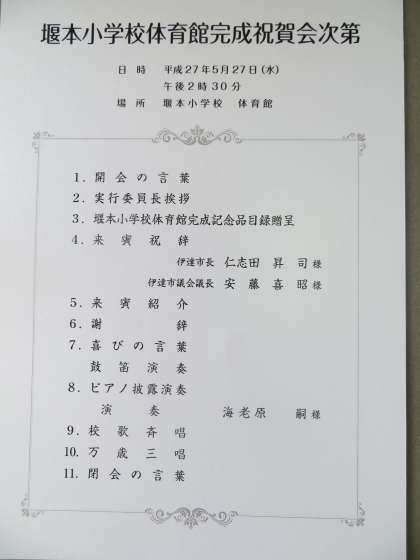 堰本小学校体育館完成祝賀会次第
日 時 平成27年5月27日(水)
午後2時30分
場 所 堰本小学校 体育館
1. 開会の言葉
2. 実行委員長挨拶
3. 堰本小学校体育館完成記念品目録贈呈
4. 来賓祝辞
伊達市長 仁志田 昇 司 様
伊達市議会議長 安 藤 喜 昭 様
5. 来賓紹介
6. 謝 辞
7. 喜びの言葉
鼓笛演奏
8. ピアノ披露演奏
演 奏 海老原 嗣 様
9. 校歌斉唱
10. 万歳三唱
11. 閉会の言葉